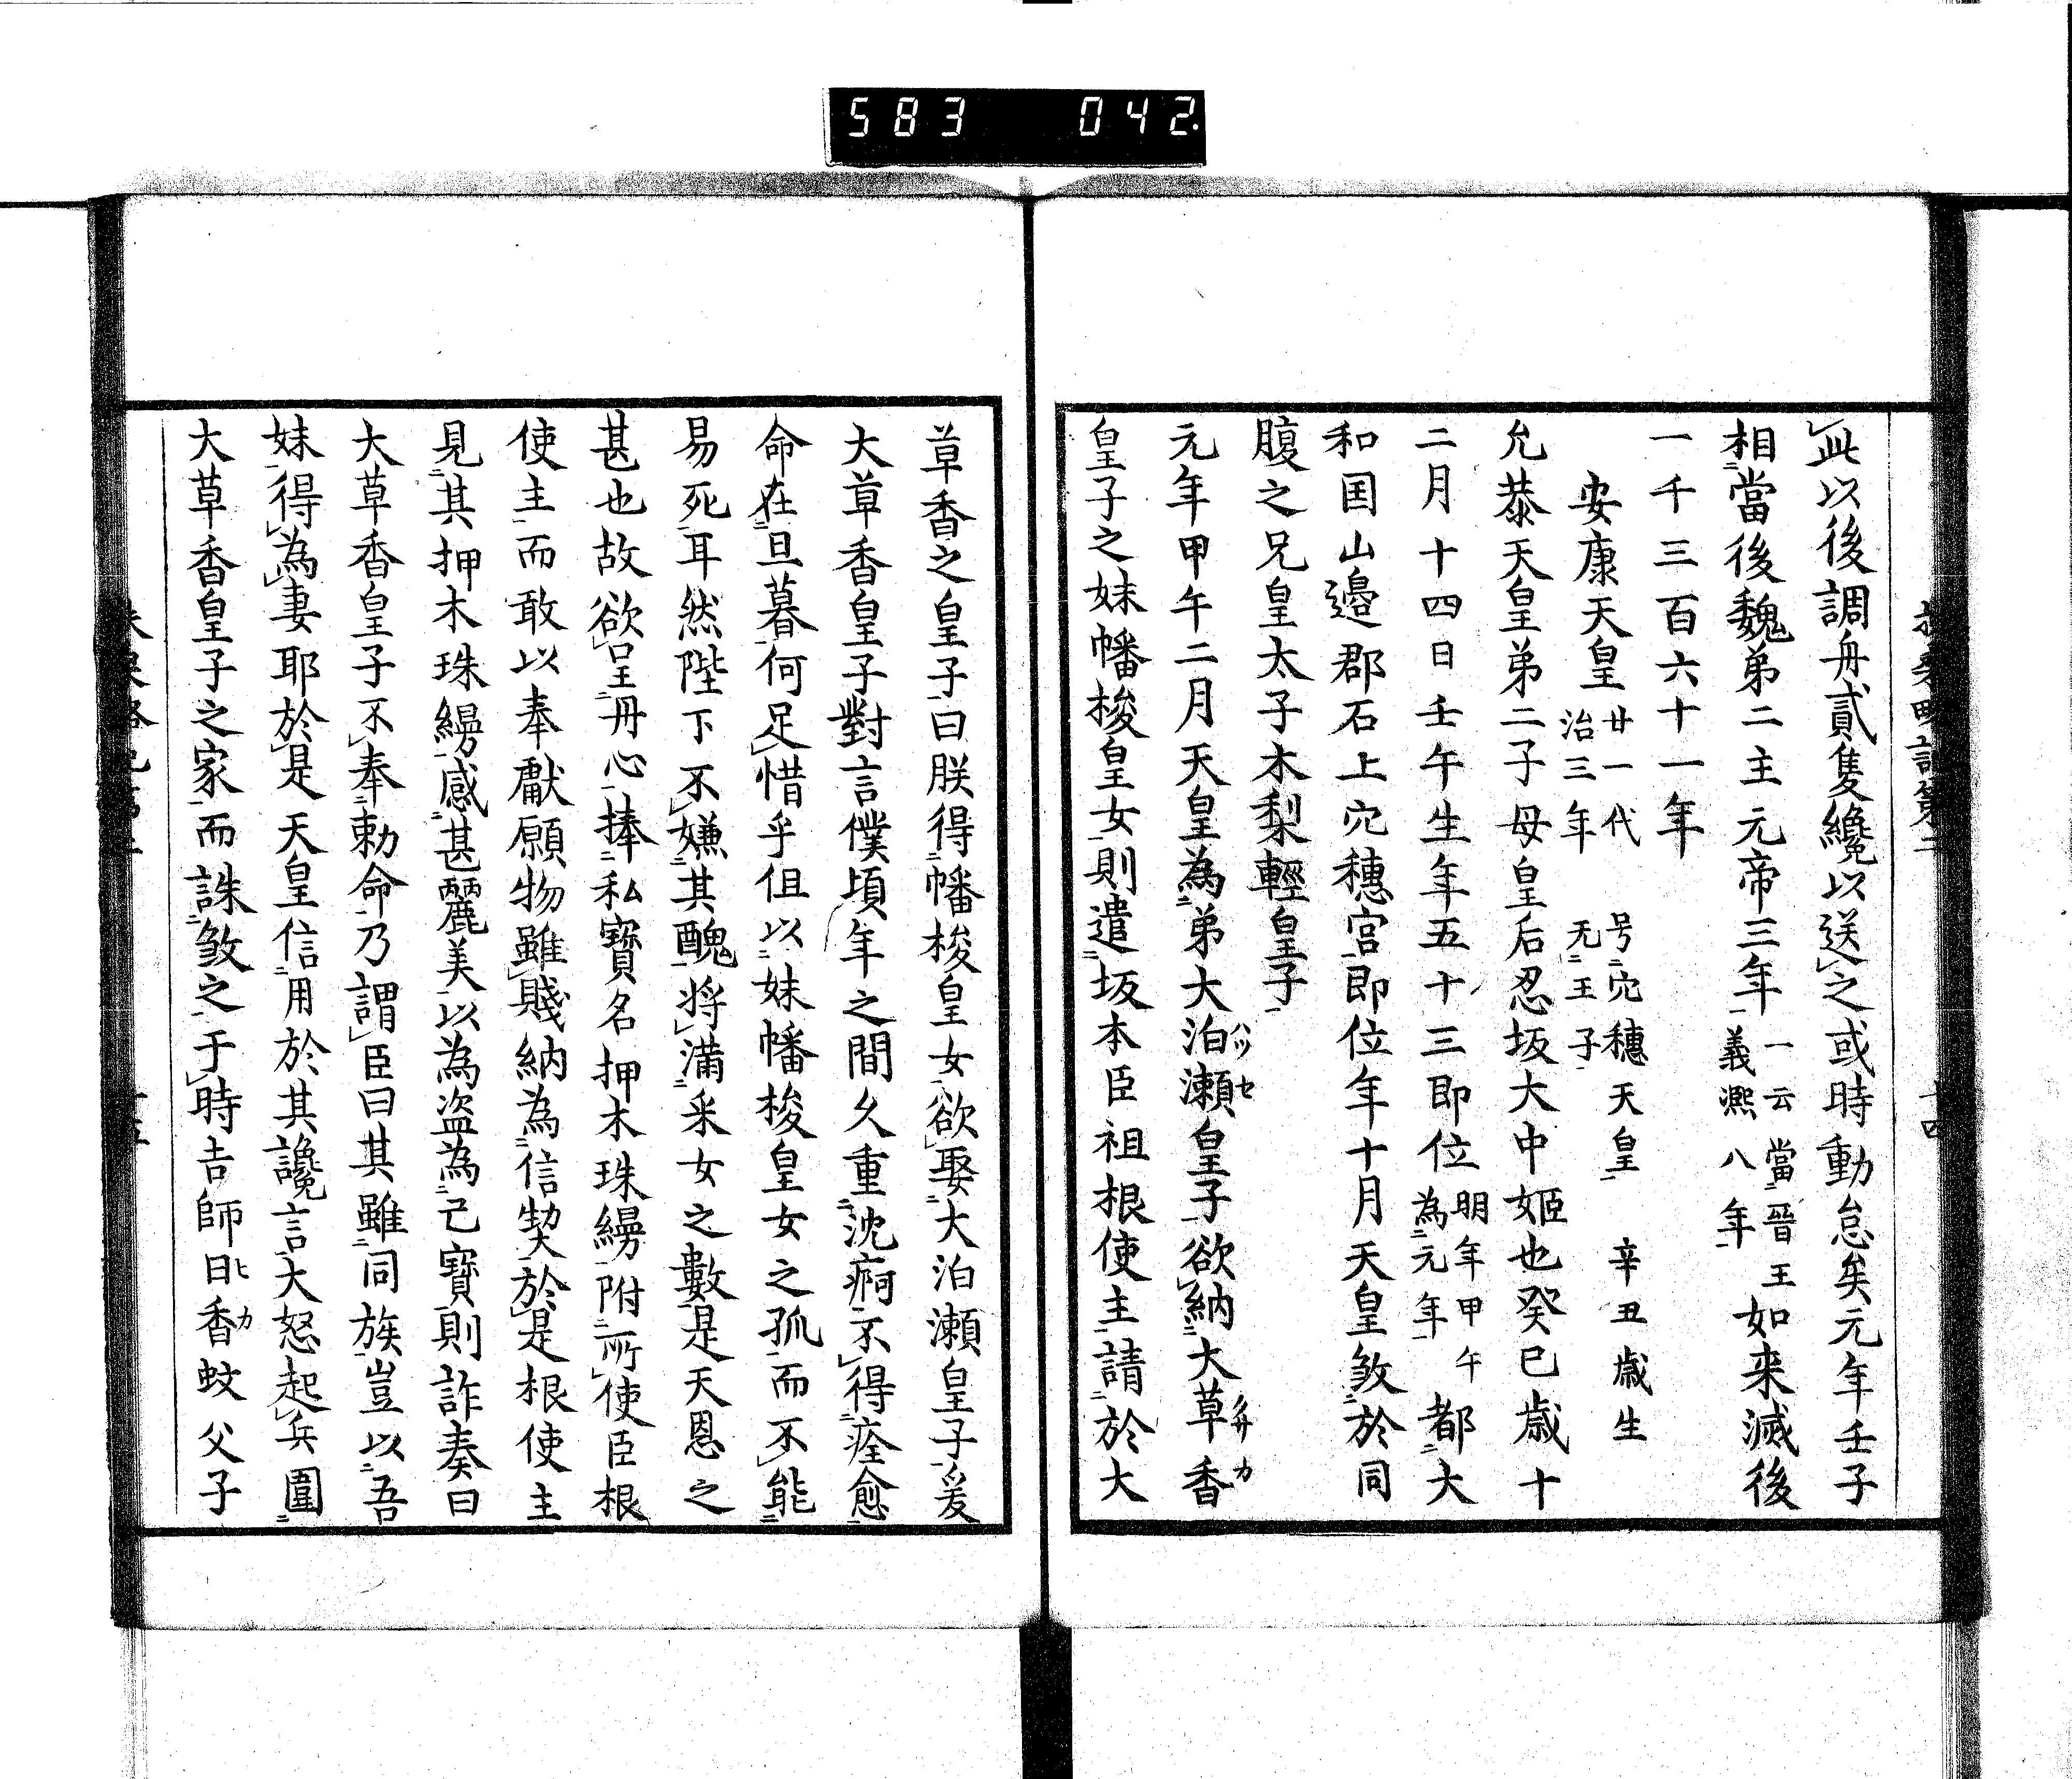 583 042.
此以後調舟貳隻纔以送之或時動怠矣元年壬子
相當後魏第二主元帝三年一云當晉王義熙八年如来滅後
一千三百六十一年
安康天皇廿一代治三年 号穴穗天皇无王子 辛丑歳生
允恭天皇第二子母皇后忍坂大中姬也癸巳歳十
二月十四日壬午生年五十三即位明年甲午為元年都大
和国山邉郡石上穴穗宮即位年十月天皇敓於同
腹之兄皇太子木梨輕皇子
元年甲午二月天皇為弟大泊瀬皇子欲納大草香
皇子之妹幡梭皇女則遣坂本臣祖根使主請於大
草香之皇子曰朕得幡梭皇女欲娶大泊瀬皇子爰
大草香皇子對言僕頃年之間久重沈痾不得痊愈
命在旦暮何足惜乎但以妹幡梭皇女之孤而不能
易死耳然陛下不嫌其醜将滿釆女之數是天恩之
甚也故欲呈丹心捧私寳名押木珠縵附所使臣根
使主而敢以奉獻願物雖賤納為信契於是根使主
見其押木珠縵感甚麗美以為盗為己寶則詐奏曰
大草香皇子不奉勅命乃謂臣曰其雖同族豈以吾
妹得為妻耶於是天皇信用於其讒言大怒起兵圍
大草香皇子之家而誅敓之于時吉師日香蚊父子